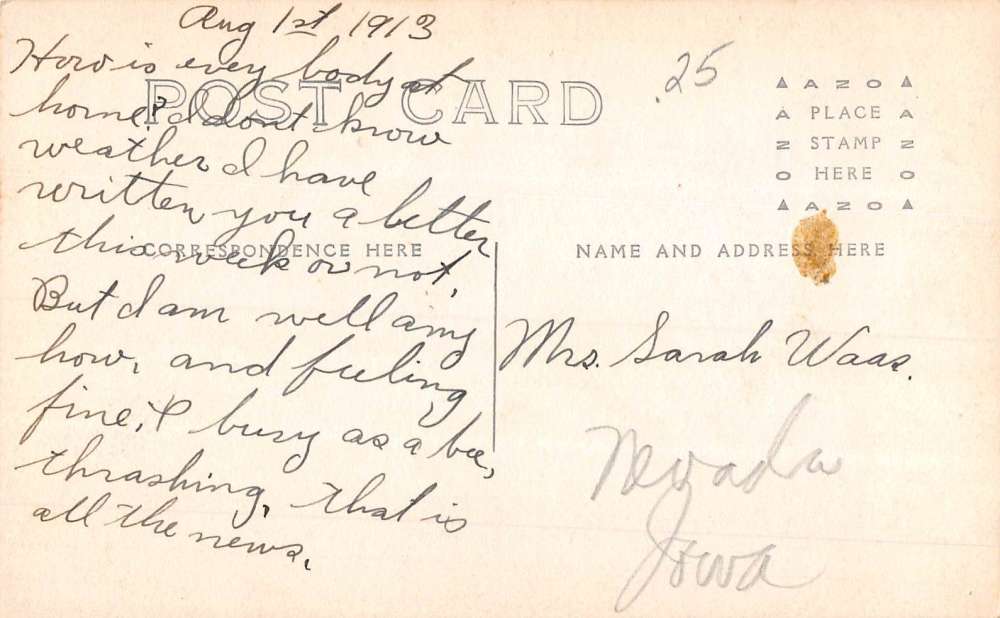 Aug 1st 1913
How is evey body at
home? I dont know
weather I have
written you a letter
this week or not,
But I am well any
how, and feeling
fine, & busy as a bee,
thrashing, that is
all the news.
POST CARD
CORRESPONDENCE HERE
.25
AZO
PLACE
STAMP
HERE
AZO
NAME AND ADDRESS HERE
Mrs. Sarah Waas.
Nevada
Iowa